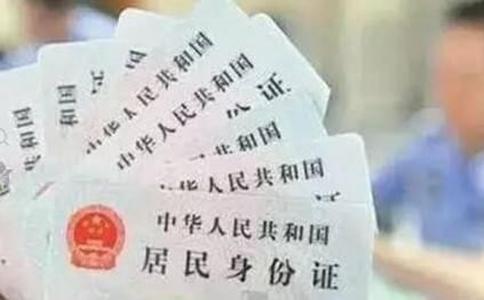 共和国
共和国
中华人民共和国
份证
中华人民共和国
份证
华人民共和国
中华人民共和国
居民身份证